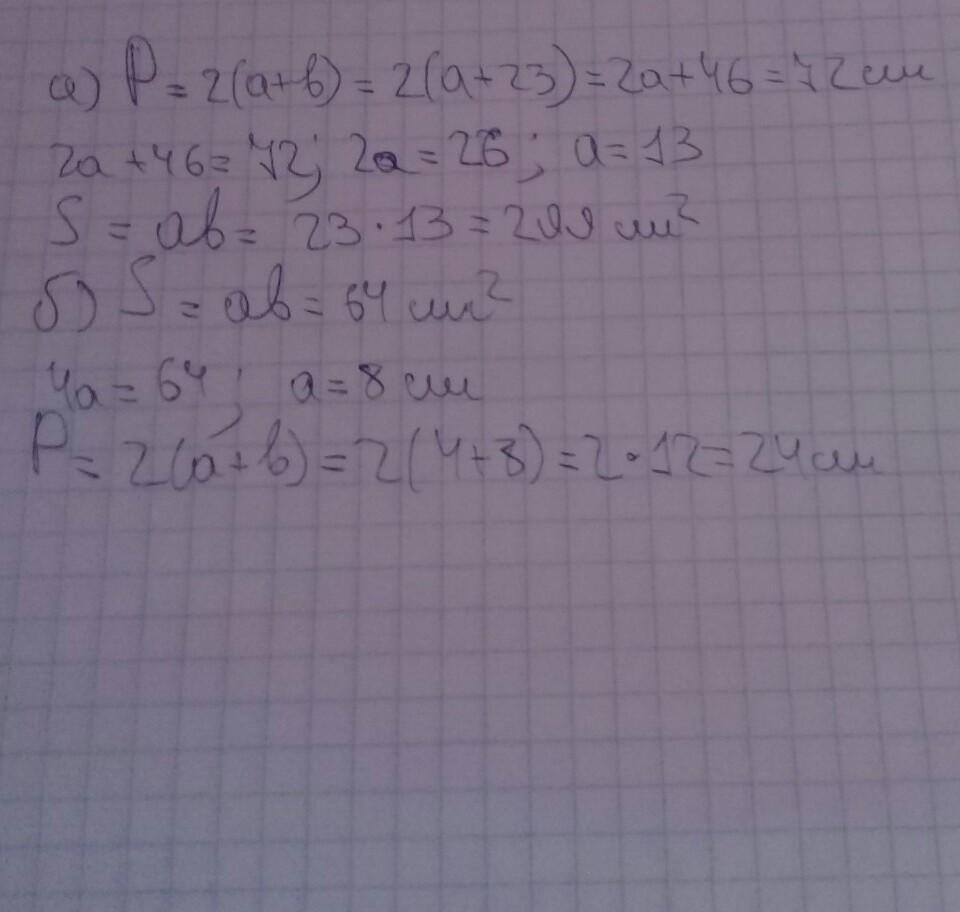 а) P = 2(a+b) = 2(a+23) = 2a+46 = 72 см
2a+46=72; 2a=26; a=13
S = ab = 23·13 = 299 см²
б) S = ab = 64 см²
4a = 64; a = 8 см
P = 2(a+b) = 2(4+8) = 2·12 = 24 см